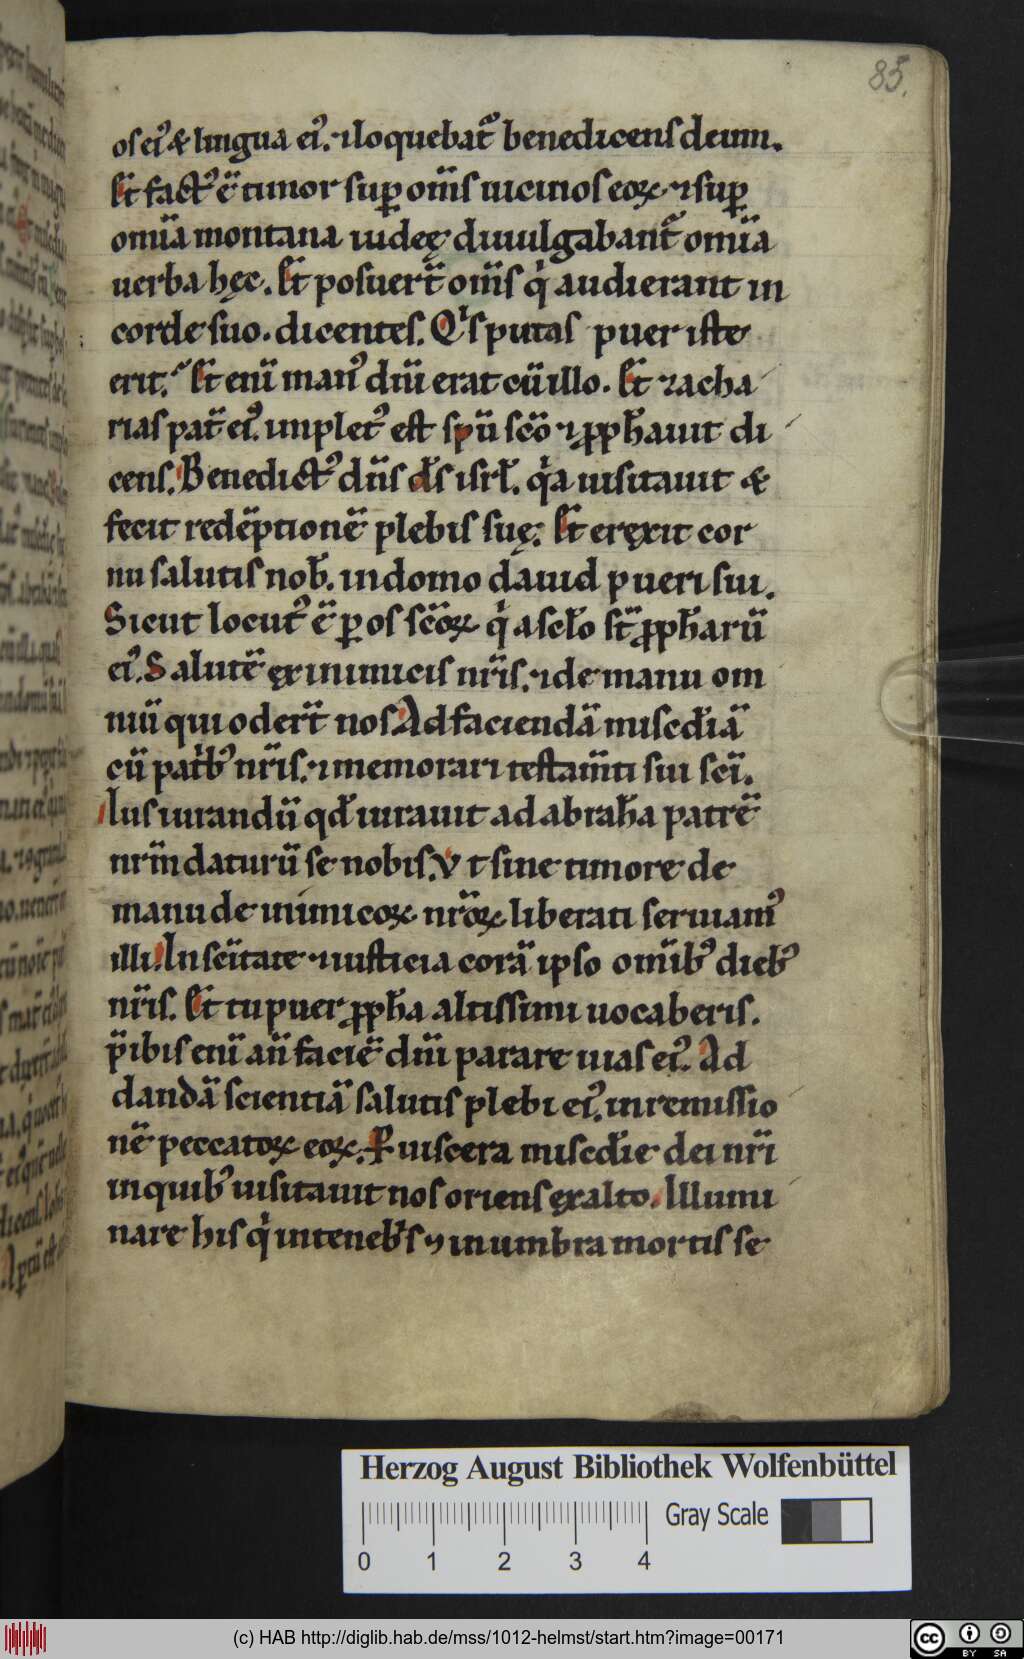 85.
os ei᷒ & lingua ei᷒. ⁊ loquebat᷑ benedicens deum.
Et̅ fact᷒ e̅ timor sup̱ om̅s uicinos eoꝝ. ⁊ sup̱
omi̅a montana iudeę diuulgabant᷑ omi̅a
uerba hęc. Et̅ posuer̅t om̅s qͥ audierant in
corde suo. dicentes. Qͥs putas puer iste
erit. Et̅ eni̅ man᷒ dn̅i erat cu̅ illo. Et̅ zacha
rias pat̅ ei᷒. implet᷒ est spu̅ sc̅o ⁊ ꝓph̅auit di
cens. Benedict᷒ dn̅s ds̅ isrl̅. qͥa uisitauit &
fecit rede̅ptione̅ plebis suę. Et̅ eręxit cor
nu salutis nob̅. in domo dauid pueri sui.
Sicut locut᷒ e̅ ꝑ os sc̅oꝝ qͥ a sec̅lo st̅ ꝓph̅aru̅
ei᷒. Salute̅ ęx inimicis nr̅is. ⁊ de manu om
niu̅ qui oder̅t nos. Ad facienda̅ misecd̅ia̅
cu̅ patͥb᷒ nr̅is. ⁊ memorari testam̅ti sui sc̅i.
Ius iurandu̅ qd̅ iurauit ad abrah̅a patre̅
nr̅m daturu̅ se nobis. Vt sine timore de
manu de inimicoꝝ nr̅oꝝ liberati seruiam᷒
illi. In sc̅itate ⁊ iusticia cora̅ ipso om̅ib᷒ dieb᷒
nr̅is. Et̅ tu puer ꝓph̅a altissimi uocaberis.
p̅ibis eni̅ an̅ facie̅ dn̅i parare uias ei᷒. Ad
danda̅ scientia̅ salutis plebi ei᷒. in remissio
ne̅ peccatoꝝ eoꝝ. Ꝑ uiscera misecd̅ie dei nr̅i
in quib᷒ uisitauit nos oriens ęxalto. Illumi
nare his qͥ in teneb̅s ⁊ in umbra mortis se
Herzog August Bibliothek Wolfenbüttel
Gray Scale
0 1 2 3 4
(c) HAB http://diglib.hab.de/mss/1012-helmst/start.htm?image=00171
cc BY SA